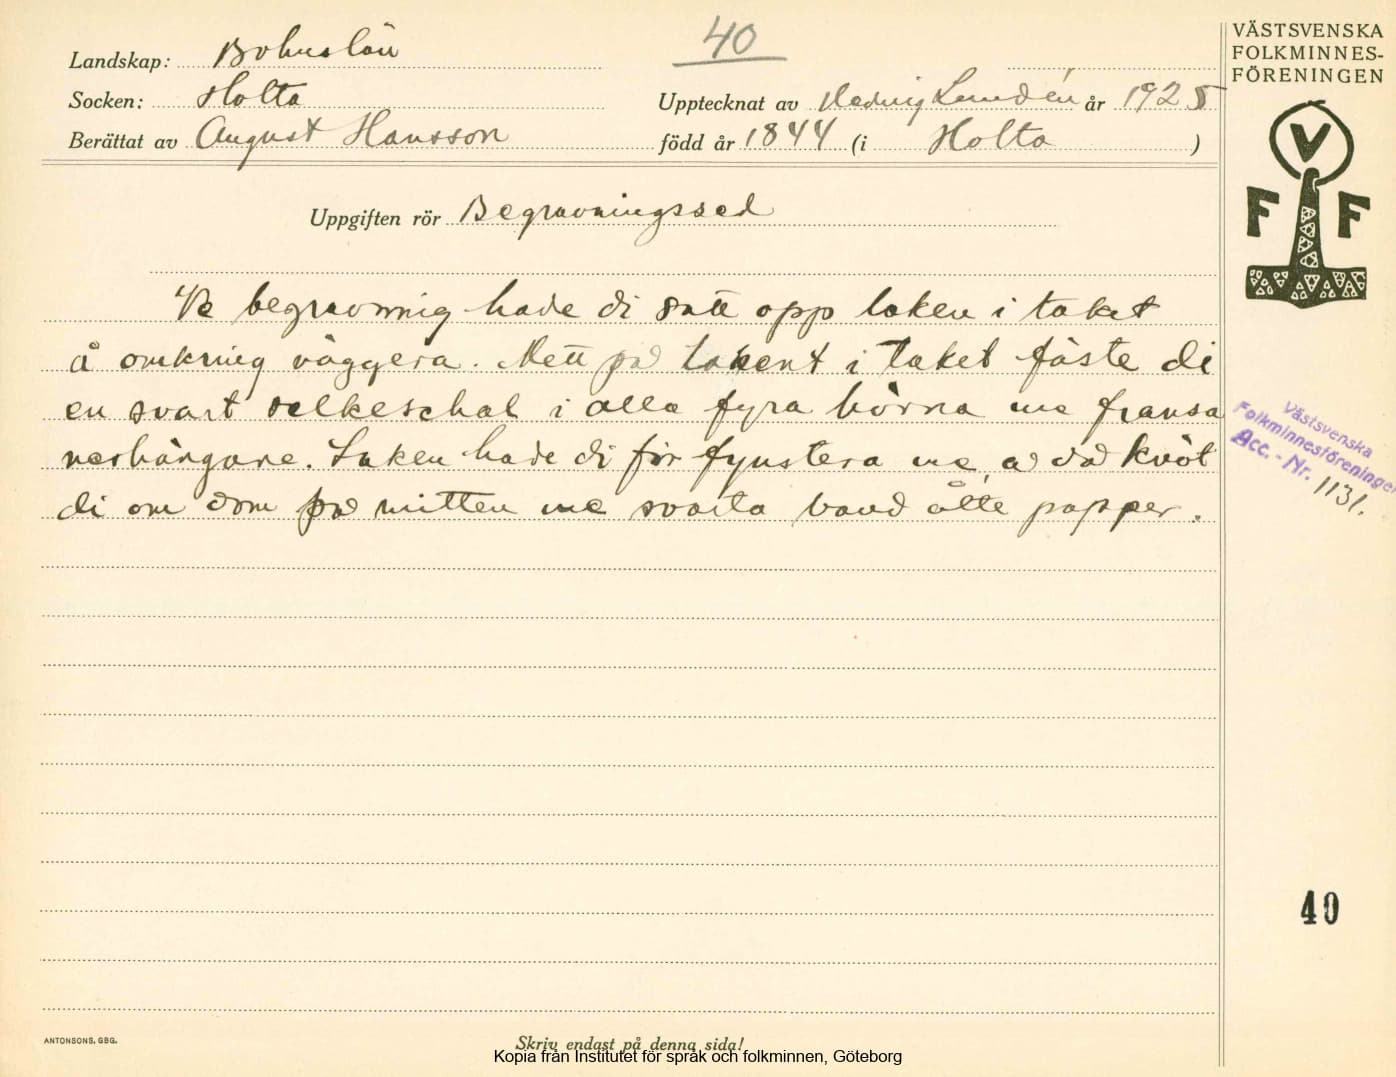 40
VÄSTSVENSKA
FOLKMINNES-
FÖRENINGEN
Landskap: Bohuslän
Socken: Holta
Upptecknat av Hedvig Lundén år 1925
Berättat av August Hansson
född år 1844 (i Holta )
V
F F
Uppgiften rör Begravningssed
Ve begravning hade di satt opp laken i taket
å omkring väggera. Mett på lakent i taket fäste di
en svart selkeschal i alla fyra hörna me fransa
nerhängane. Laken hade di för fynstera me, å då knöt
di om dom på mitten me svarta band åtte papper.
Västsvenska
Folkminnesföreningen
Acc.-Nr. 1131.
40
ANTONSONS, GBG.
Skriv endast på denna sida!
Kopia från Institutet för språk och folkminnen, Göteborg